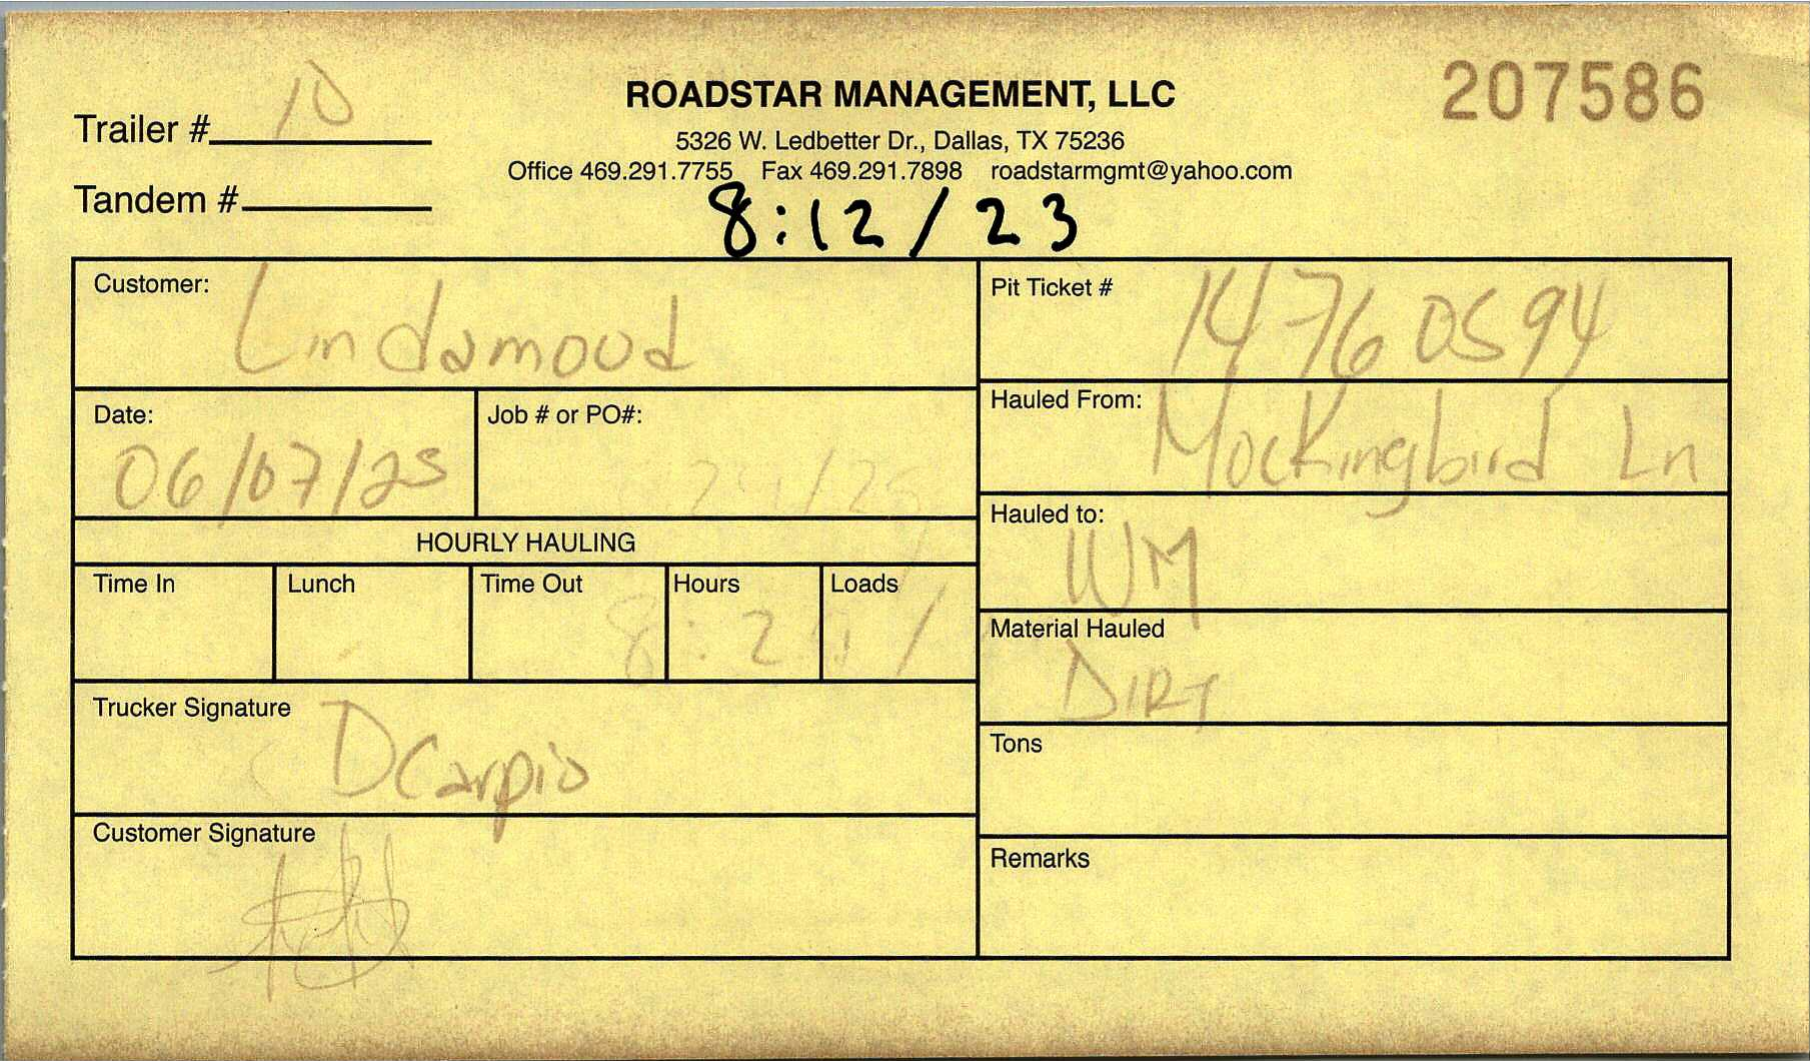 207586
ROADSTAR MANAGEMENT, LLC
5326 W. Ledbetter Dr., Dallas, TX 75236
Office 469.291.7755 Fax 469.291.7898 roadstarmgmt@yahoo.com
Trailer # 10
Tandem #
8:12/23
Customer: Lindamoud
Pit Ticket # 14760594
Date: 06/07/25
Job # or PO#:
Hauled From: Mockingbird Ln
Hauled to: WM
HOURLY HAULING
Time In Lunch Time Out Hours Loads
Material Hauled DIRT
Trucker Signature DCarpio
Tons
Customer Signature
Remarks